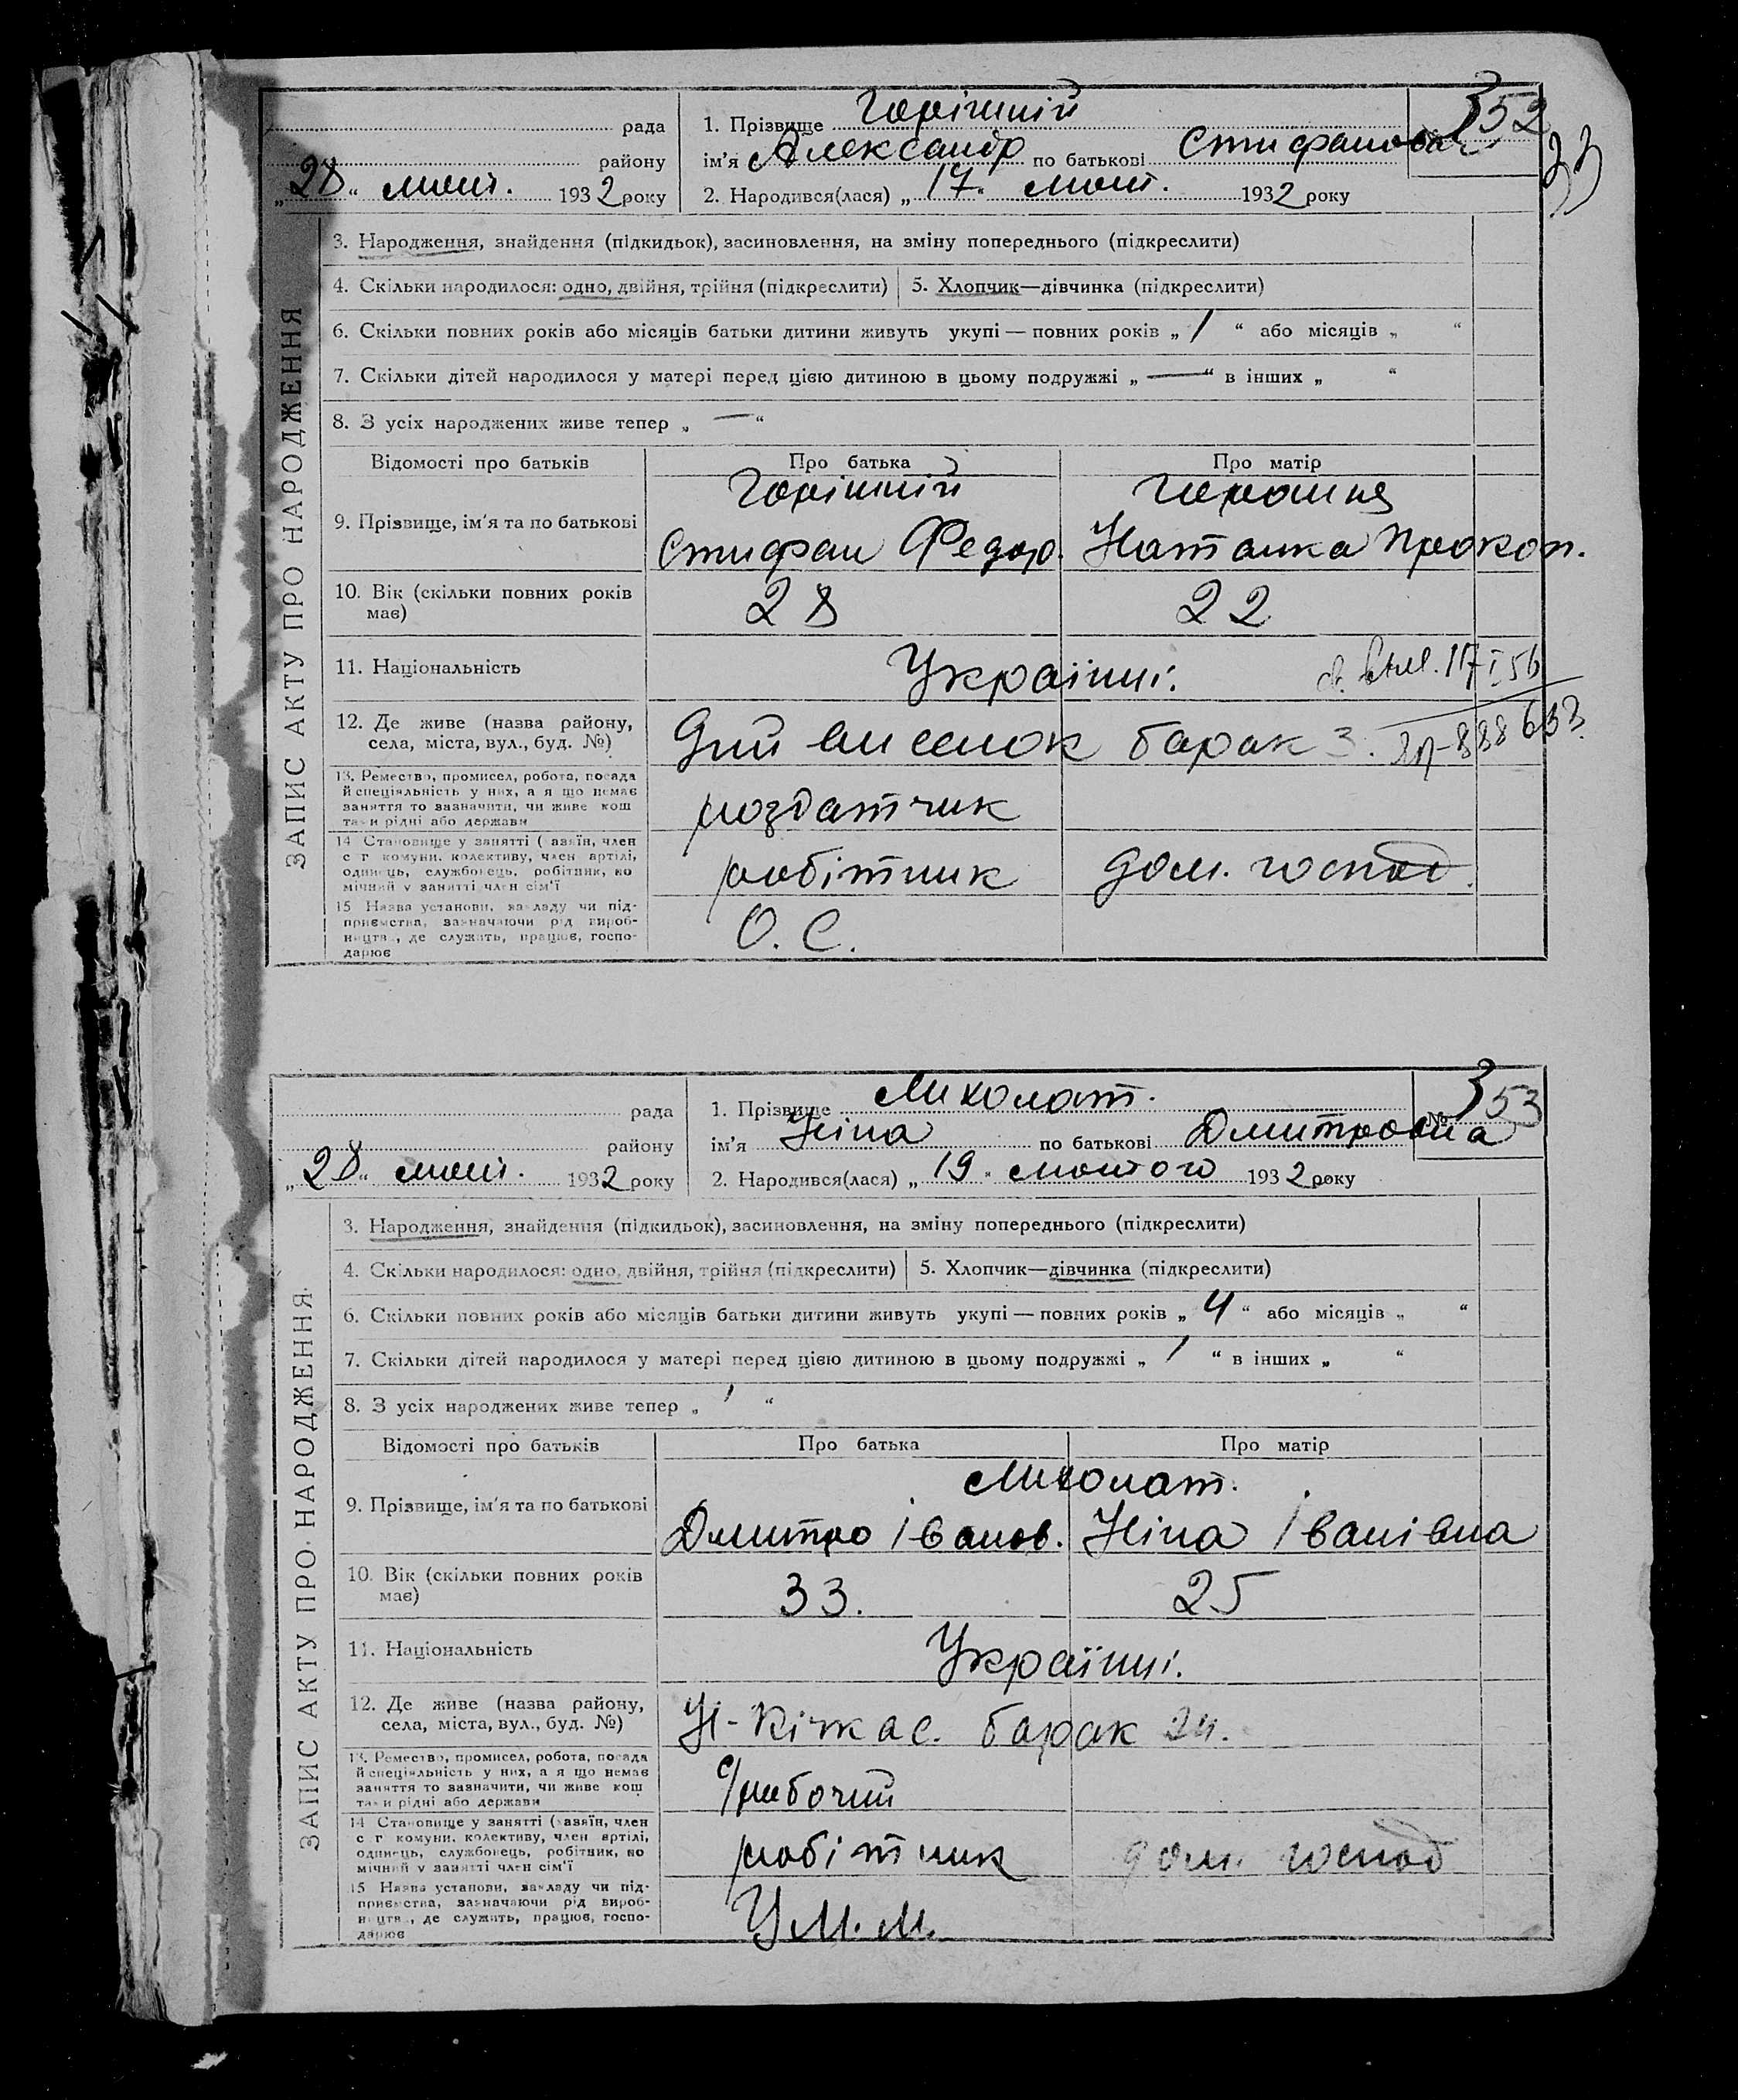 352
33
рада
1. Прізвище Горішній
району
ім'я Александр по батькові Стифанович
„28“ лют. 1932 року
2. Народився(лася) „17“ лют. 1932 року
ЗАПИС АКТУ ПРО НАРОДЖЕННЯ
3. Народження, знайдення (підкидьок), засиновлення, на зміну попереднього (підкреслити)
4. Скільки народилося: одно, двійня, трійня (підкреслити)
5. Хлопчик—дівчинка (підкреслити)
6. Скільки повних років або місяців батьки дитини живуть укупі — повних років „1“ або місяців „ “
7. Скільки дітей народилося у матері перед цією дитиною в цьому подружжі „—“ в інших „ “
8. З усіх народжених живе тепер „—“
Відомості про батьків Про батька Про матір
9. Прізвище, ім'я та по батькові
Горішній
Стифан Федор.
Наталка Прокоп.
10. Вік (скільки повних років
має)
28 22
11. Національність Українці.
117 I 56
12. Де живе (назва району,
села, міста, вул., буд. №)
виселок барак 3.
888633
13. Ремество, промисел, робота, посада
й спеціяльність у них, а я що немає
заняття то зазначити, чи живе кош
тами рідні або держави
роздатчик
14 Становище у занятті (хазяїн, член
с г комуни, колективу, член артілі,
одинець, службовець, робітник, по
мічний у занятті член сім'ї
робітник дом. господ.
15 Назва установи, закладу чи під-
приємства, зазначаючи рід вироб-
ництва, де служить, працює, госпо-
дарює
О. С.
№ 353
рада
1. Прізвище Миколат.
району
ім'я Ніна по батькові Дмитровна
„28“ лют. 1932 року
2. Народився(лася) „19“ лютого 1932 року
ЗАПИС АКТУ ПРО НАРОДЖЕННЯ
3. Народження, знайдення (підкидьок), засиновлення, на зміну попереднього (підкреслити)
4. Скільки народилося: одно, двійня, трійня (підкреслити)
5. Хлопчик—дівчинка (підкреслити)
6. Скільки повних років або місяців батьки дитини живуть укупі — повних років „4“ або місяців „ “
7. Скільки дітей народилося у матері перед цією дитиною в цьому подружжі „1“ в інших „ “
8. З усіх народжених живе тепер „1“
Відомості про батьків Про батька Про матір
9. Прізвище, ім'я та по батькові
Миколат.
Дмитро Іванов. Ніна Іванівна
10. Вік (скільки повних років
має)
33. 25
11. Національність Українці.
12. Де живе (назва району,
села, міста, вул., буд. №)
Н-Кічкас. барак 24.
13. Ремество, промисел, робота, посада
й спеціяльність у них, а я що немає
заняття то зазначити, чи живе кош
тами рідні або держави
ч/рабочий
14 Становище у занятті (хазяїн, член
с г комуни, колективу, член артілі,
одинець, службовець, робітник, по
мічний у занятті член сім'ї
робітник дом. господ
15 Назва установи, закладу чи під-
приємства, зазначаючи рід вироб-
ництва, де служить, працює, госпо-
дарює
У М. М.